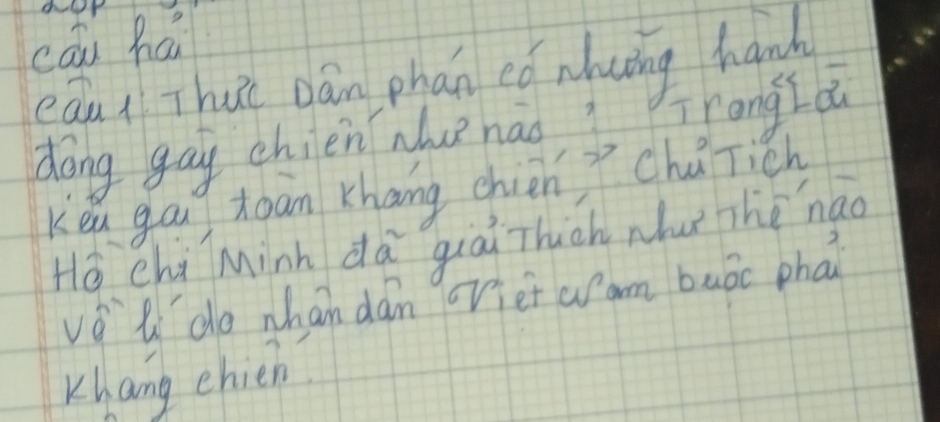 câu hải
câu 1: Thực Dân phán có nhưỡng hành
đông gay chiến như nào ? Trong "Lời
Kêu gai toan kháng chiến" Chủ Tịch
Hồ Chí Minh đã giải Thích như Thế nào
về lí do nhân dân Việt Nam buộc phải
Kháng chiến.